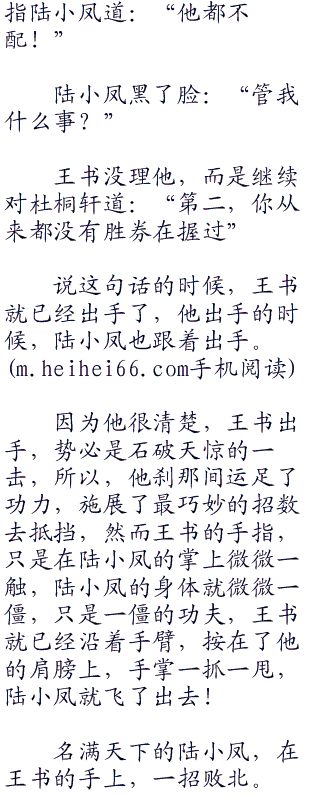 指陆小凤道：“他都不
配！”
陆小凤黑了脸：“管我
什么事？”
王书没理他，而是继续
对杜桐轩道：“第二，你从
来都没有胜券在握过”
说这句话的时候，王书
就已经出手了，他出手的时
候，陆小凤也跟着出手。
(m.heihei66.com手机阅读)
因为他很清楚，王书出
手，势必是石破天惊的一
击，所以，他刹那间运足了
功力，施展了最巧妙的招数
去抵挡，然而王书的手指，
只是在陆小凤的掌上微微一
触，陆小凤的身体就微微一
僵，只是一僵的功夫，王书
就已经沿着手臂，按在了他
的肩膀上，手掌一抓一甩，
陆小凤就飞了出去！
名满天下的陆小凤，在
王书的手上，一招败北。